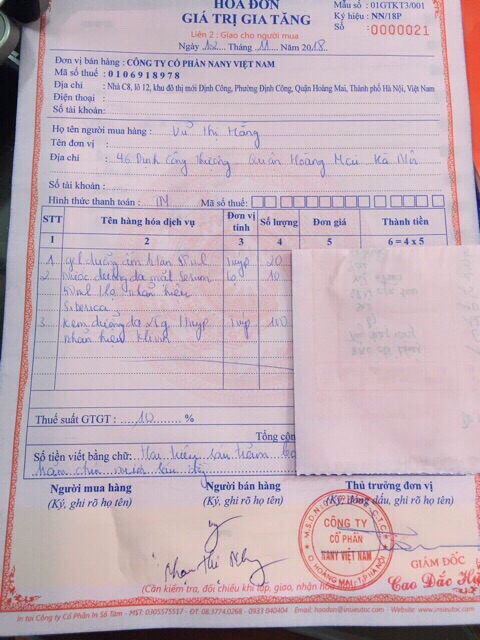 HÓA ĐƠN
GIÁ TRỊ GIA TĂNG
Liên 2 : Giao cho người mua
Ngày 12 Tháng 11 Năm 2018
Mẫu số : 01GTKT3/001
Ký hiệu : NN/18P
Số 0000021
Đơn vị bán hàng : CÔNG TY CỔ PHẦN NANY VIỆT NAM
Mã số thuế : 0106918978
Địa chỉ : Nhà C8, lô 12, khu đô thị mới Định Công, Phường Định Công, Quận Hoàng Mai, Thành phố Hà Nội, Việt Nam
Điện thoại :
Số tài khoản:
Họ tên người mua hàng : Vũ Thị Hằng
Tên đơn vị :
Địa chỉ : 46 Định Công Thượng Quận Hoàng Mai Hà Nội
Số tài khoản :
Hình thức thanh toán : TM Mã số thuế:
STT Tên hàng hóa dịch vụ Đơn vị tính Số lượng Đơn giá Thành tiền
1 2 3 4 5 6 = 4 x 5
1 gel dưỡng ẩm tuýp 20
2 Nước dưỡng da mặt Serum lọ 10
50ml nhãn hiệu
Siberica
3 Kem dưỡng da 25g 1 tuýp tuýp 100
nhãn hiệu
Thuế suất GTGT : 10 %
Tổng cộn
Số tiền viết bằng chữ: Hai triệu sáu trăm
Người mua hàng Người bán hàng Thủ trưởng đơn vị
(Ký, ghi rõ họ tên) (Ký, ghi rõ họ tên) (Ký, đóng dấu, ghi rõ họ tên)
CÔNG TY
CỔ PHẦN
NANY VIỆT NAM
Q. HOÀNG MAI - T.P HÀ NỘI
Phạm Thị
GIÁM ĐỐC
Cao Đắc
(Cần kiểm tra, đối chiếu khi lập, giao, nhận hóa
In tại Công ty Cổ Phần In Số Tám - MST: 0305575317 - ĐT: 08.3774.0268 - 0933 040404 Email: hoadon@insieutoc.com - Website: www.insieutoc.com